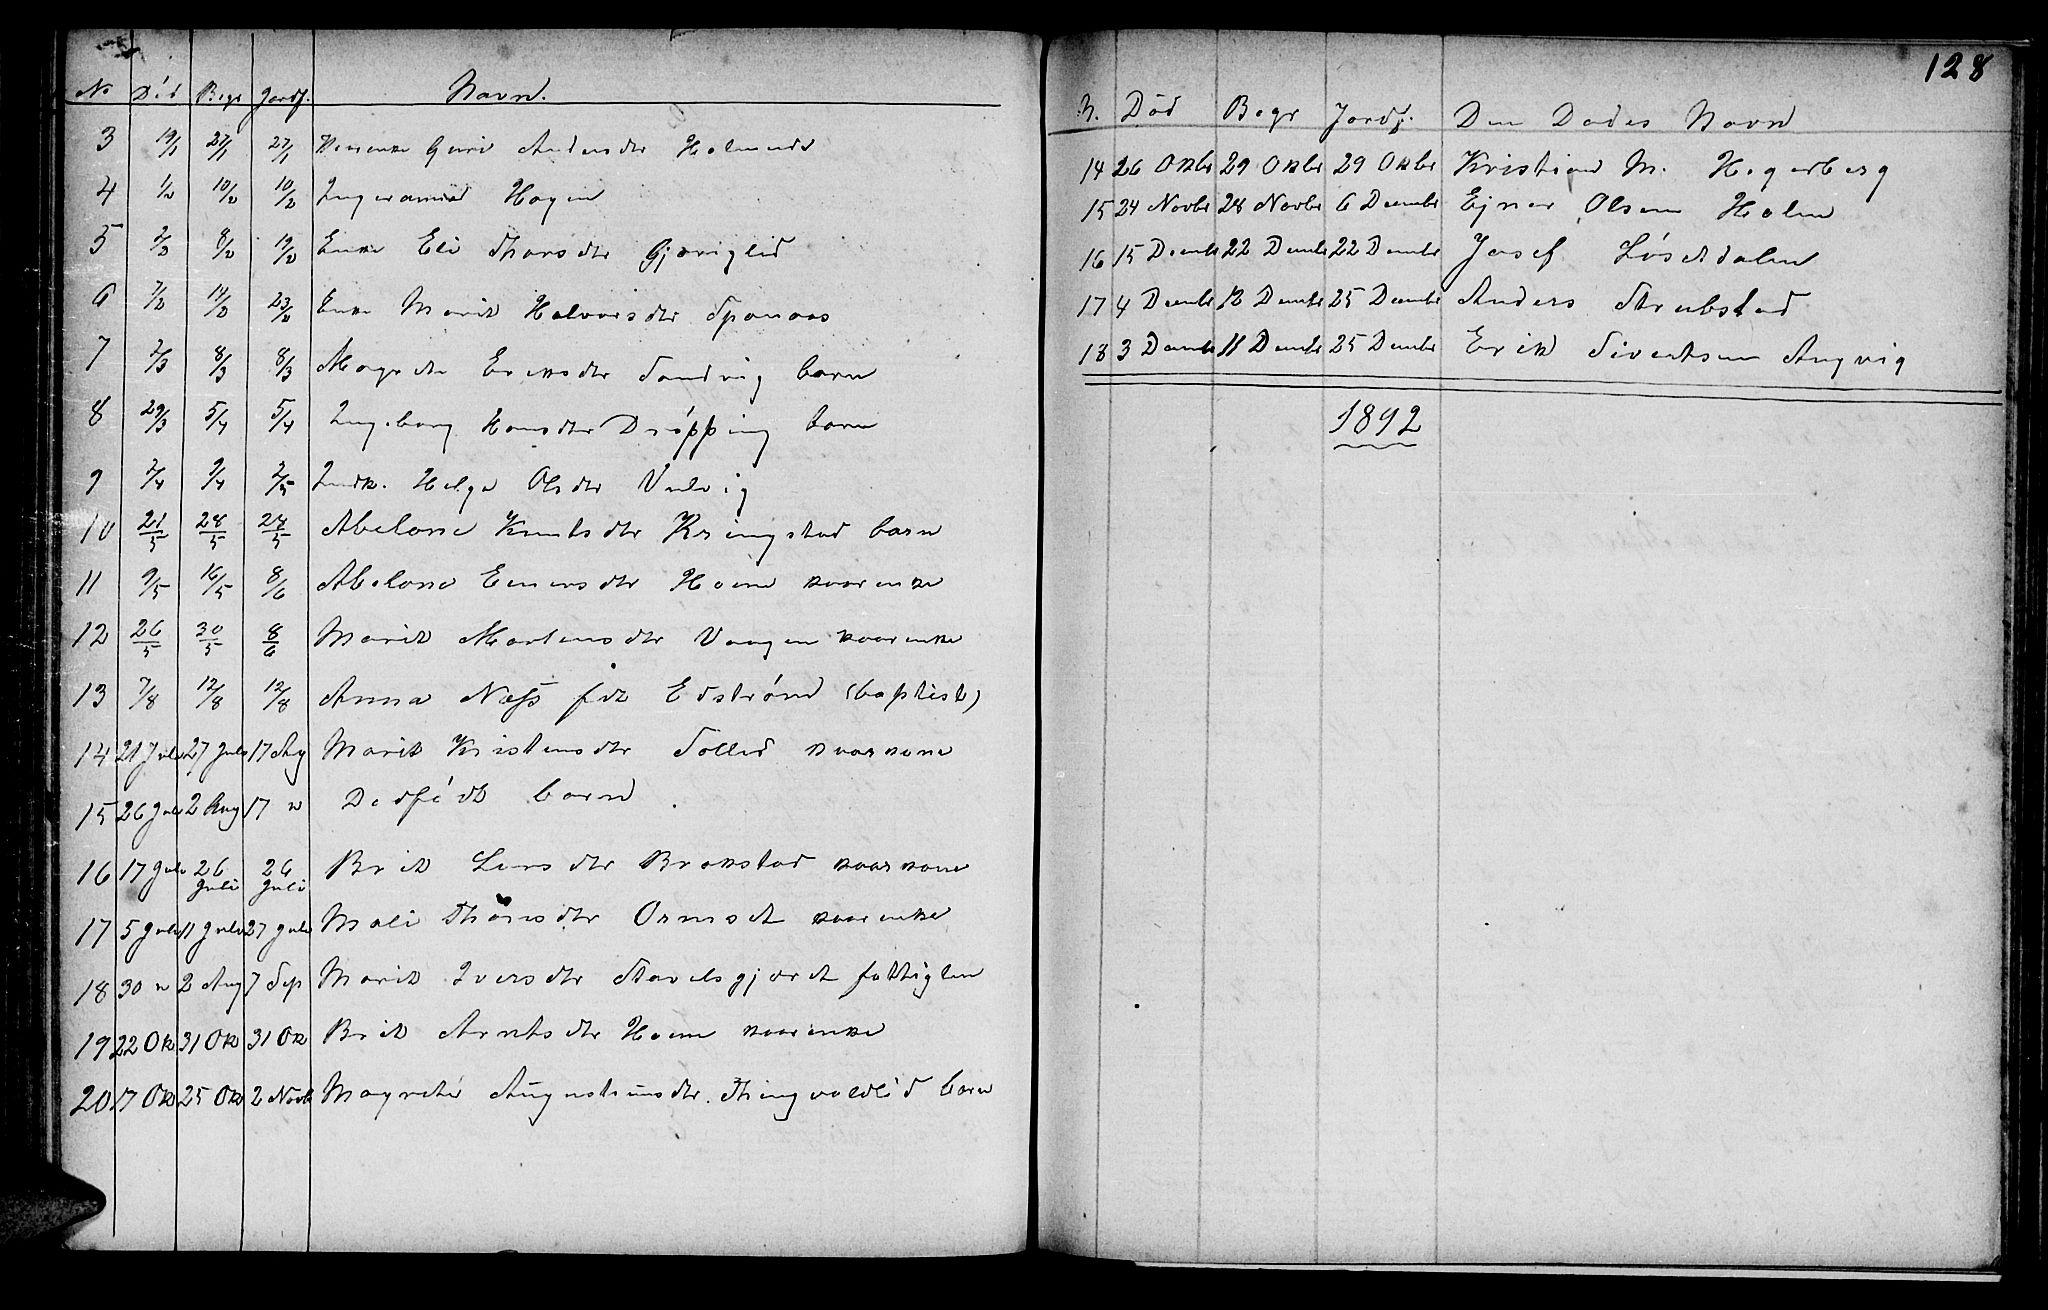 No Död Begr Jordf. Navn.
3 19/1 27/1 27/1 Guri Andersdtr
4 1/2 10/2 10/2 Ingeranna Hagen
5 2/2 8/2 19/2 Enke Eli Thorsdtr Gjøriglid
6 7/2 14/2 23/2 Enke Marit Halvorsdtr Spanaas
7 2/3 8/3 8/3 Magrete Eriksdtr Sandvig barn
8 29/3 5/4 5/4 Ingeborg Hansdtr Dröpping barn
9 2/4 9/4 2/5 Indk. Helge Olsdtr Vulvig
10 21/5 28/5 28/5 Abelone Knutsdtr Kringstad barn
11 9/5 16/5 8/6 Abelone Einersdtr Hoem kaarenke
12 26/5 30/5 8/6 Marit Martensdtr Vaagen kaarenke
13 7/8 12/8 12/8 Anna Næss fdt Edströnd (baptist)
14 21 Juli 27 Juli 17 Aug Marit Kristensdtr Sollid kaarkone
15 26 Juli 2 Aug 17 " Dødfödt barn
16 17 Juli 26 Juli 26 Juli Brit Larsdtr Brokstad kaarkone
17 5 Juli 11 Juli 27 Juli Mali Thorsdtr Ormset kaarenke
18 30 " 2 Aug 7 Sep Marit Iversdtr Stavelsgjæret fattiglem
19 22 Ok 31 Ok 31 Ok Brit Arntsdtr Hoem kaarenke
20 17 Ok 25 Ok 2 Novb Magrete Augustinusdtr. Thingvoldlid barn
128
N. Död Begr Jordf. Den Dødes Navn
14 26 Okbr 29 Okbr 29 Okbr Kristian M. Hegerberg
15 24 Novbr 28 Novbr 6 Decmbr Ejner Olsen Holm
16 15 Decmbr 22 Decmbr 22 Decmbr Josef Lösetdalen
17 4 Decmbr 12 Decmbr 25 Decmbr Anders Strubstad
18 3 Decmbr 11 Decmbr 25 Decmbr Erik Sivertsen Angvig
1892